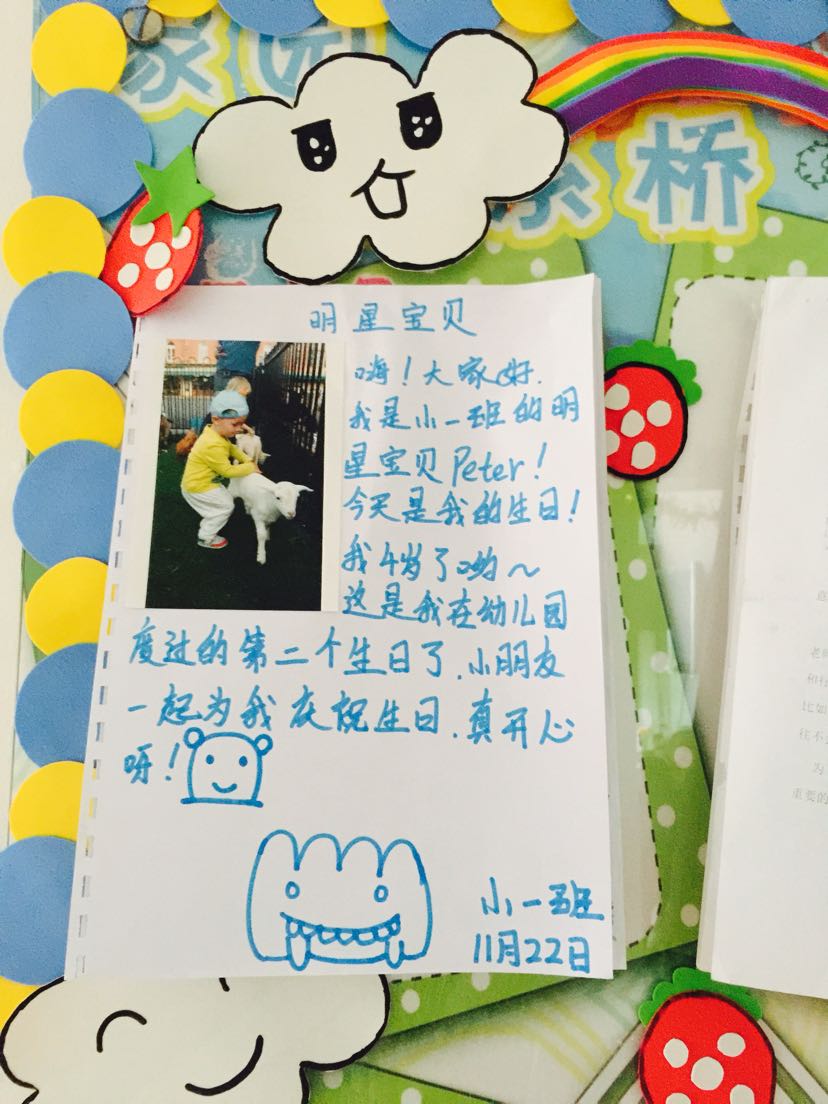 家园
桥
明星宝贝
嗨！大家好.
我是小一班的明
星宝贝Peter！
今天是我的生日！
我4岁了哟～
这是我在幼儿园
度过的第二个生日了.小朋友
一起为我庆祝生日.真开心
呀！
小一班
11月22日
老师
和行
比如
往不
为
重要的